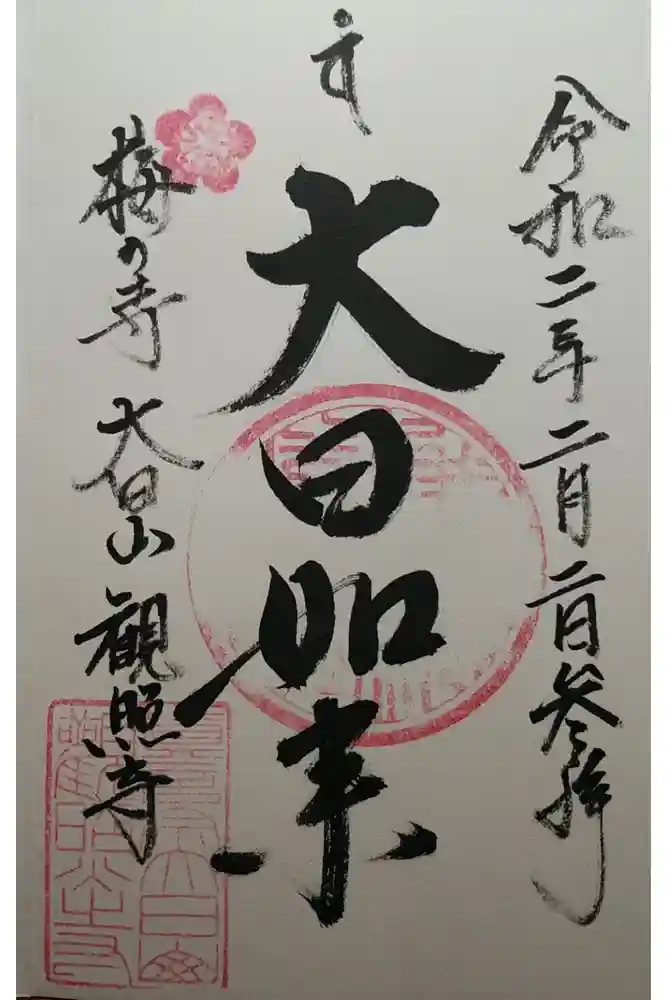 令和二年二月二日参拝
大日如来
梅の寺 大日山 観照寺